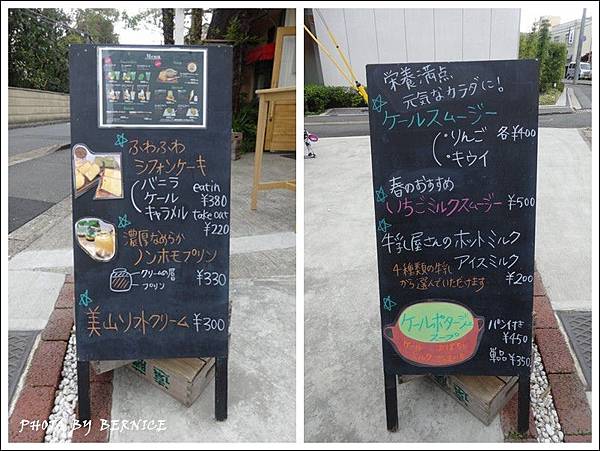 Menu
ふわふわ
シフォンケーキ
バニラ
ケール
キャラメル
eatin
¥380
take out
¥220
濃厚なめらか
ノンホモプリン
クリームの層
プリン
¥330
美山ソフトクリーム ¥300
PHOTO BY BERNICE
栄養満点
元気なカラダに!
ケールスムージー
・りんご 各¥400
・キウイ
春のおすすめ
いちごミルクスムージー ¥500
牛乳屋さんのホットミルク
アイスミルク
4種類の牛乳
から選んでいただけます
¥200
ケールポタージュ
スープ
パン付き
¥450
単品¥350